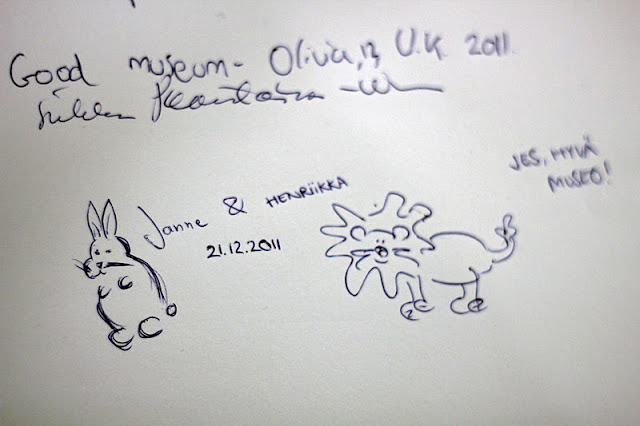 Good museum - Olivia, 13 U.K. 2011.
Janne & HENRIIKKA
21.12.2011
JES, HYVÄ
MUSEO!